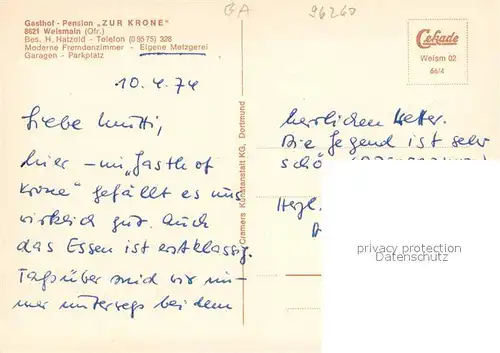 Gasthof - Pension „ZUR KRONE"
8621 Weismain (Ofr.)
Bes. H. Hatzold - Telefon (0 95 75) 328
Moderne Fremdenzimmer - Eigene Metzgerei
Garagen - Parkplatz
GA
96260
Cekade
Weism 02
66/4
10.4.74
Liebe Mutti,
hier - im „Gasthof
Krone" gefällt es uns
wirklich gut. Auch
das Essen ist erstklassig.
Tagsüber sind wir im-
mer unterwegs bei dem
Cramers Kunstanstalt KG, Dortmund
herrlichen Wetter.
Die Gegend ist sehr
schö
Herzl.
privacy protection
Datenschutz